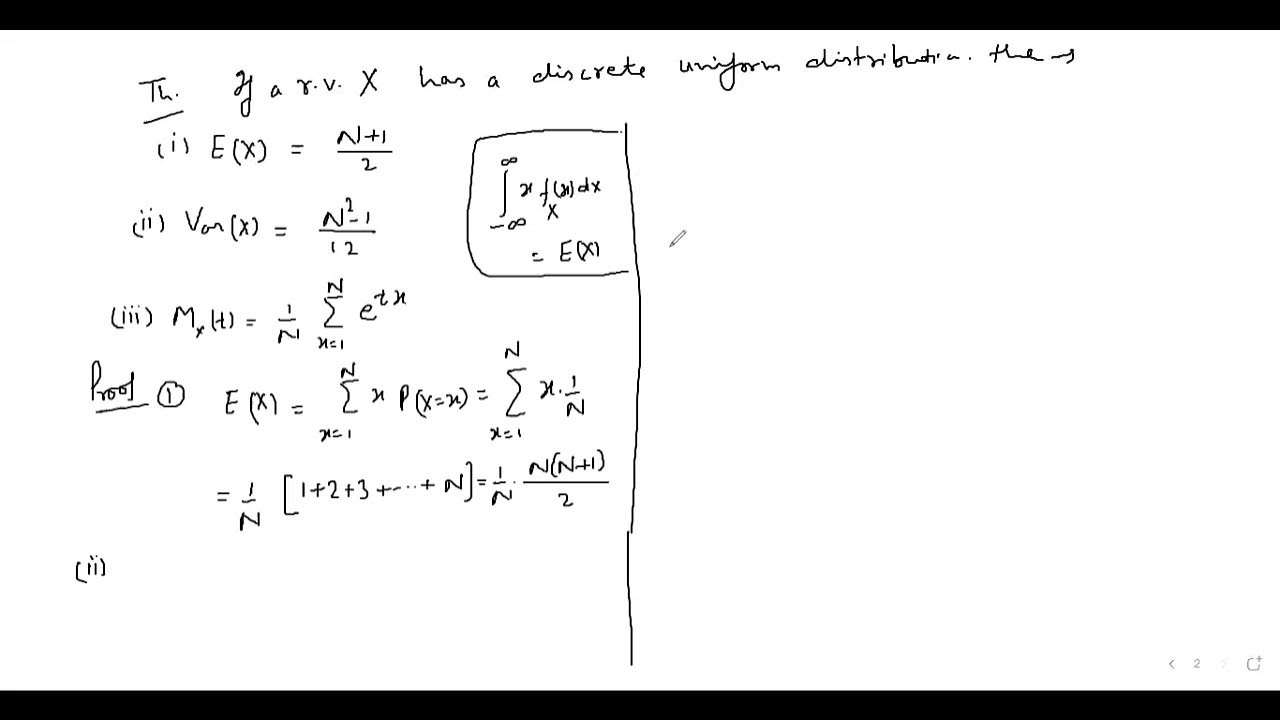 Th. If a r.v. X has a discrete uniform distribution. then
(i) E(X) = \frac{N+1}{2}
(ii) Var(X) = \frac{N^2-1}{12}
\int_{-∞}^{∞} x f_X(x) dx
= E(X)
(iii) M_x(t) = \frac{1}{N} \sum_{x=1}^{N} e^{tx}
Proof ① E(X) = \sum_{x=1}^{N} x P(X=x) = \sum_{x=1}^{N} x \cdot \frac{1}{N}
= \frac{1}{N} [1+2+3+\cdots+N] = \frac{1}{N} \cdot \frac{N(N+1)}{2}
(ii)
2